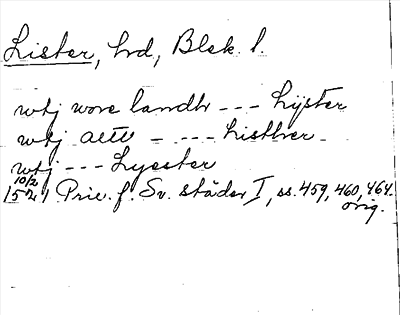 Lister, hd, Blek. l.
wtj wore landh --- Lijster
wtj alltt - --- Listher
wtj --- Lyester
10/2
1521 Priv. f. Sv. städer I, ss. 459, 460, 464.
orig.